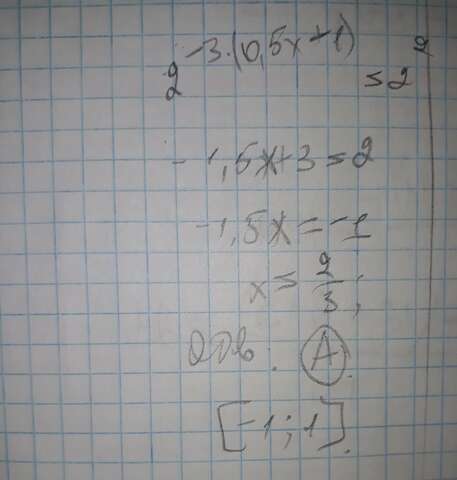 2^{-3·(0,5x-1)} ≤ 2^2
-1,5x+3 ≤ 2
-1,5x = -1
x ≤ 2/3;
Отв. А.
[-1;1].